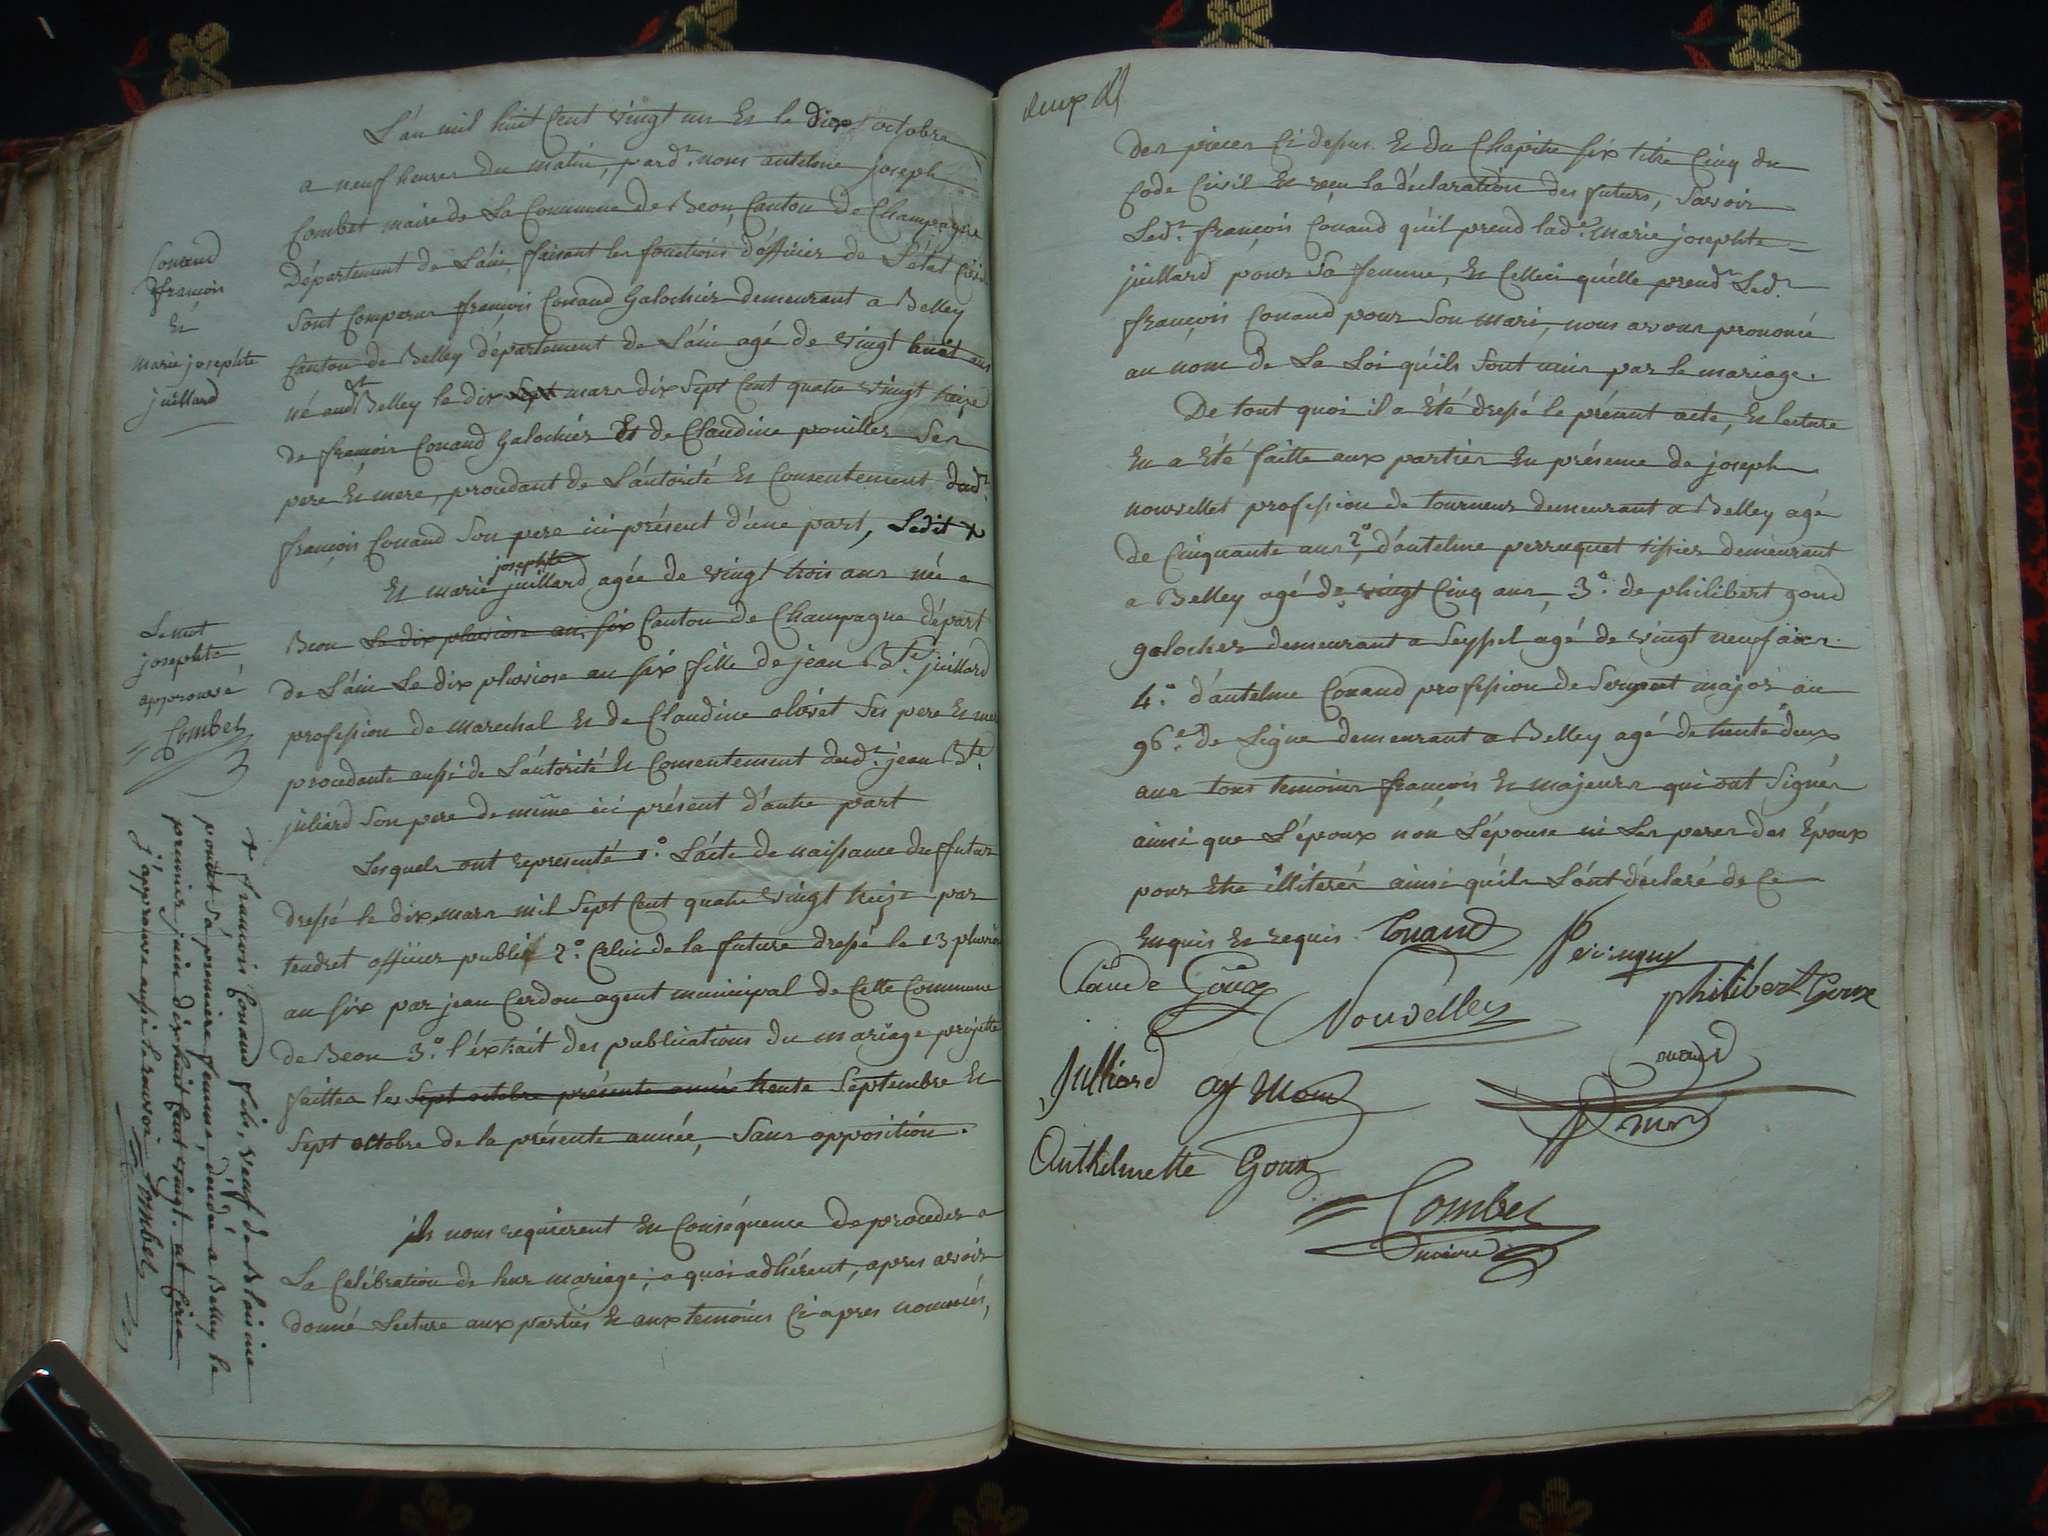 L'an mil huit Cent vingt un Et le dix octobre
a neuf heures du matin, pard.t nous antelme joseph
Combet maire de La Commune de Beon, Canton de Champagne
Département de L'ain, faisant les fonctions d'officier de L'état Civil
Sont Comparus françois Conand Galochier demeurant a Belley
Canton de Belley département de L'ain agé de vingt huit ans
né aud.t Belley le dix sept mars dix Sept Cent quatre vingt treize
de françois Conand Galochier Et de Claudine pouillet Ses
pere Et mere, procédant de L'autorité Et Consentement dud.t
françois Conand Son pere ici présent d'une part, Ledit x
josephte
Et marie juillard agée de vingt trois ans née a
Beon Le dix pluviose an six Canton de Champagne départ
de L'ain Le dix pluviose an six fille de jean B.te juillard
profession de marechal Et de Claudine olivet Ses pere Et mere
procédante aussi de L'autorité Et Consentement dud.t jean B.te
juliard Son pere de même ici présent d'autre part
Lesquels ont représenté 1.o L'acte de naissance du futur
dressé le dix mars mil Sept Cent quatre vingt treize par
tendret officier public 2.o Celui de la future dressé le 13 pluviose
an six par jean Cerdon agent municipal de Cette Commune
de Beon 3.o l'éxtrait des publications du mariage projetté
faittes les sept octobre présente année trente Septembre Et
Sept octobre de la présente année, Sans opposition.
ils nous requierent En Conséquence de procéder a
La Célébration de leur mariage; a quoi adhérent, apres avoir
donné Lecture aux parties Et aux temoins Ci apres nommés,
Conand
françois
Et
marie josephte
juillard
Le mot
josephte
approuvé
Combet
x françois Conand fils, veuf de Blaisine
poncet Sa premiere femme, décédée a Belley le
premier juin dix huit Cent vingt.
j'approuve aussi le renvoi Combet
des pieces Ci dessus Et du Chapitre six titre Cinq du
Code Civil Et reçu la déclaration des futurs, Savoir
Led.t françois Conand qu'il prend lad.e marie josephte
juillard pour Sa femme, Et Celleci qu'elle prend Led.t
françois Conand pour Son mari, nous avons prononcé
au nom de La Loi qu'ils Sont unis par le mariage.
De tout quoi il a Eté dressé le présent acte, Et lecture
En a Eté faitte aux parties En présence de joseph
nouvellet profession de tourneur demeurant a Belley agé
de Cinquante ans, 2.o d'antelme perruquet tissier demeurant
a Belley agé de vingt Cinq ans, 3.o de philibert goud
galocher demeurant a Seyssel agé de vingt neuf ans.
4.o d'antelme Conand profession de Sergent major au
96.e de Ligne demeurant a Belley agé de trente deux
ans tous temoins françois Et majeurs qui ont Signés
ainsi que L'époux non L'épouse ni Les peres des Epoux
pour Etre illiterés ainsi qu'ils L'ont déclaré de Ce
Enquis Et requis. Conand
Claude Goux Nouvellet philibert Goux
Julliard aymon
Anthelmette Goux
Combet